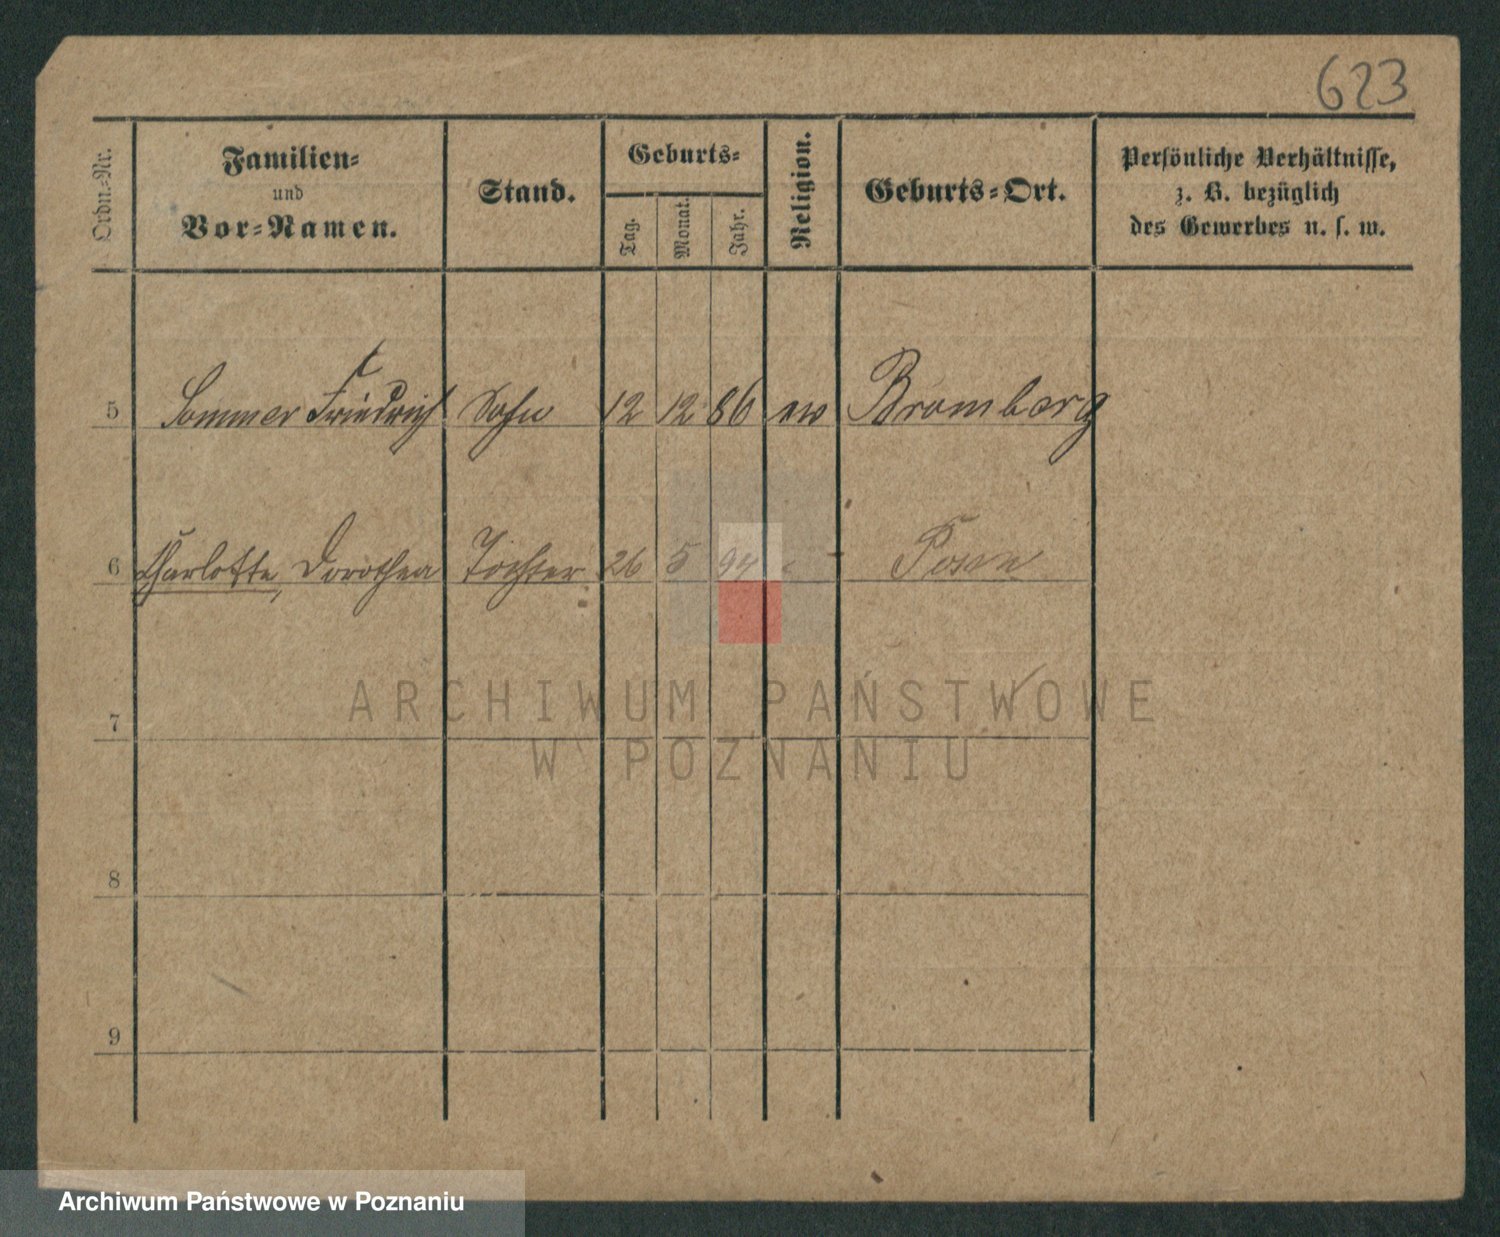 623
Ordn.-Nr.
Familien-
und
Vor-Namen.
Stand.
Geburts-
Tag.
Monat.
Jahr.
Religion.
Geburts-Ort.
Persönliche Verhältnisse,
z. B. bezüglich
des Gewerbes u. s. w.
5 Sommer Friedrich Sohn 12 12 86 ev Bromberg
6 Charlotte, Dorothea Tochter 26 5 94 - Posen
7
8
9
ARCHIWUM PAŃSTWOWE
W POZNANIU
Archiwum Państwowe w Poznaniu